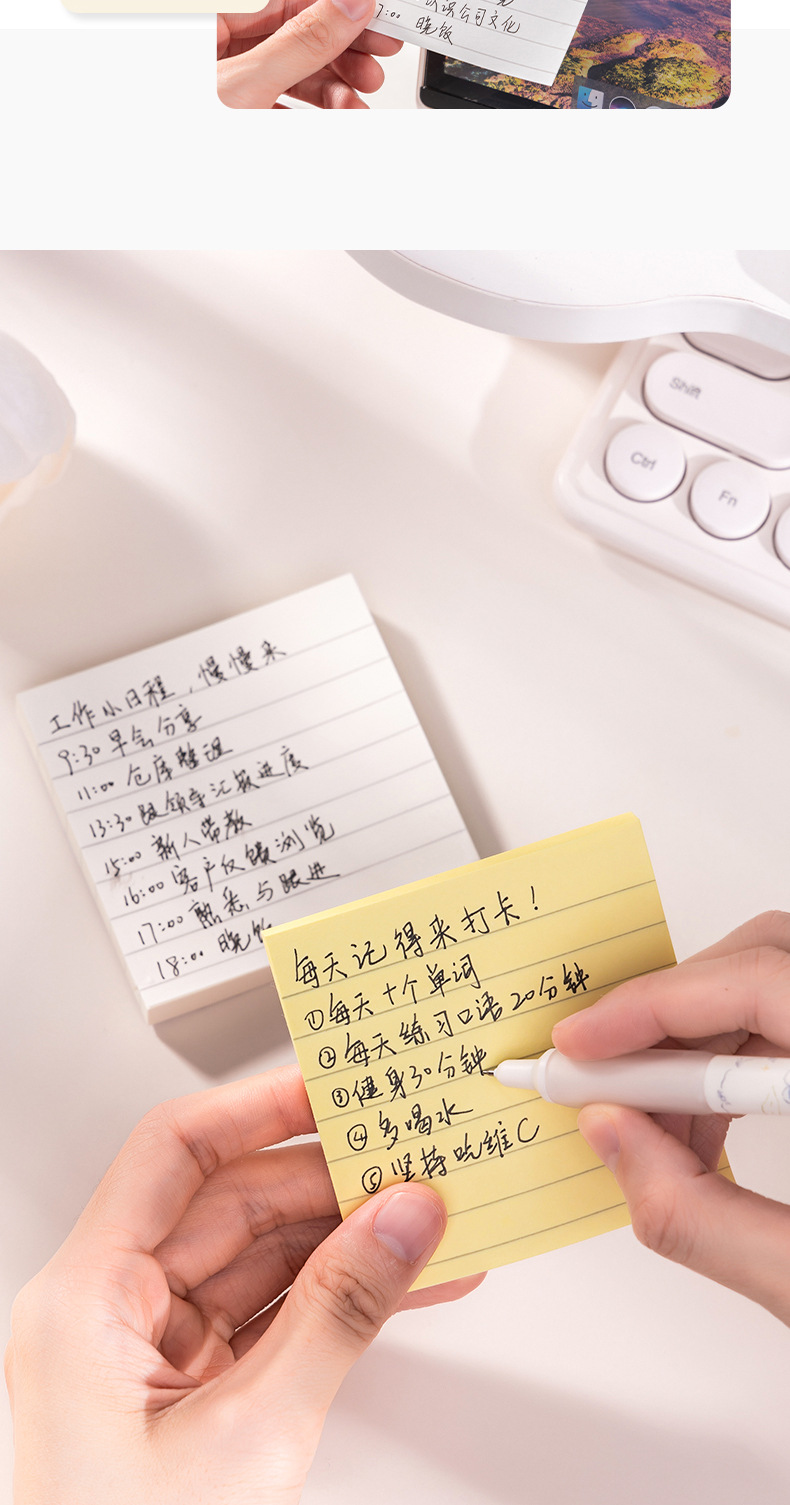 认识公司文化
7:00 晚饭
Shift
Ctrl
Fn
工作小日程，慢慢来
9:30 早会分享
11:00 仓库整理
13:30 跟领导汇报进度
15:00 新人带教
16:00 客户反馈浏览
17:00 熟悉与跟进
18:00 晚饭
每天记得来打卡！
①每天十个单词
②每天练习口语20分钟
③健身30分钟
④多喝水
⑤坚持吃维C